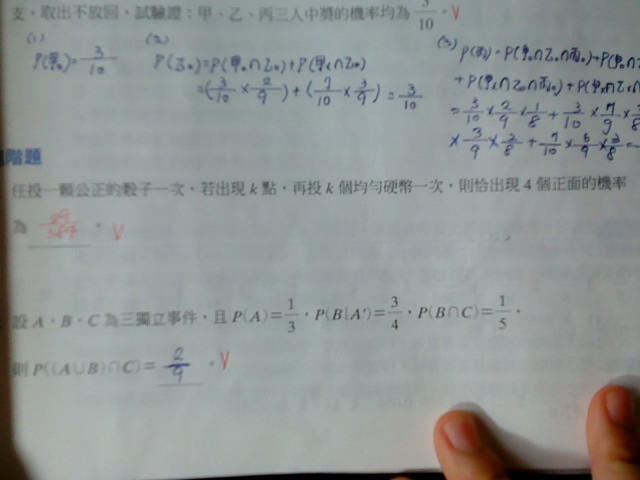 支，取出不放回，試驗證：甲、乙、丙三人中獎的機率均為 3/10。V
(1) P(甲o)=3/10
(2) P(乙o)=P(甲o∩乙o)+P(甲x∩乙o)
=(3/10×2/9)+(7/10×3/9)=3/10
(3) P(丙o)=P(甲o∩乙o∩丙o)+P(甲o∩
+P(甲x∩乙o∩丙o)+P(甲x∩乙x
=3/10×2/9×1/8+3/10×7/9×2/8
×3/9×2/8+7/10×6/9×3/8=
階題
任投一顆公正的骰子一次，若出現 k 點，再投 k 個均勻硬幣一次，則恰出現 4 個正面的機率
為 29/384。V
設 A、B、C 為三獨立事件，且 P(A)=1/3，P(B|A')=3/4，P(B∩C)=1/5，
則 P((A∪B)∩C)=2/9。V